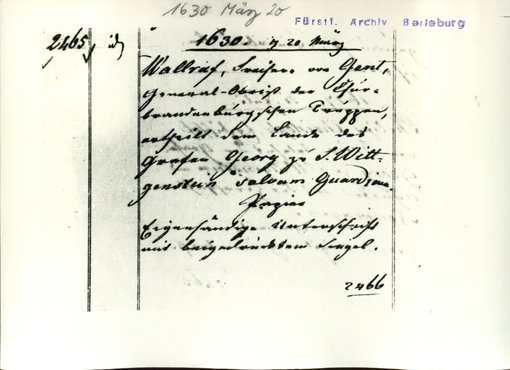 1630 März 20
Fürstl. Archiv Berleburg
2465
1630. 20. März
Wallraf, Freiherr von Gent,
General-Obrist der Chur-
brandenburgschen Truppen,
ertheilt dem Lande des
Grafen Georg zu S. Witt-
genstein Salvam Guardiam.
Papier
Eigenhändige Unterschrift
mit beigedrücktem Siegel.
2466